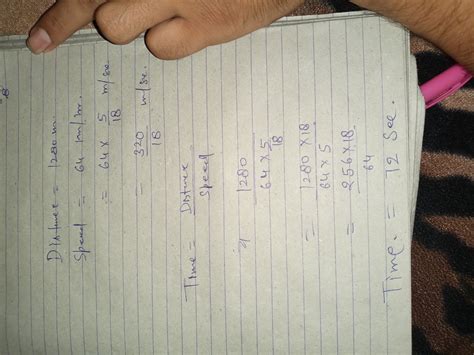 Distance = 1280 m
Speed = 64 m/hr.
= 64 × 5/18 m/sec
= 320/18 m/sec.
Time = Distance/Speed
= 1280/64 × 5/18
= 1280 × 18/64 × 5
= 256 × 18/64
Time. = 12 Sec.